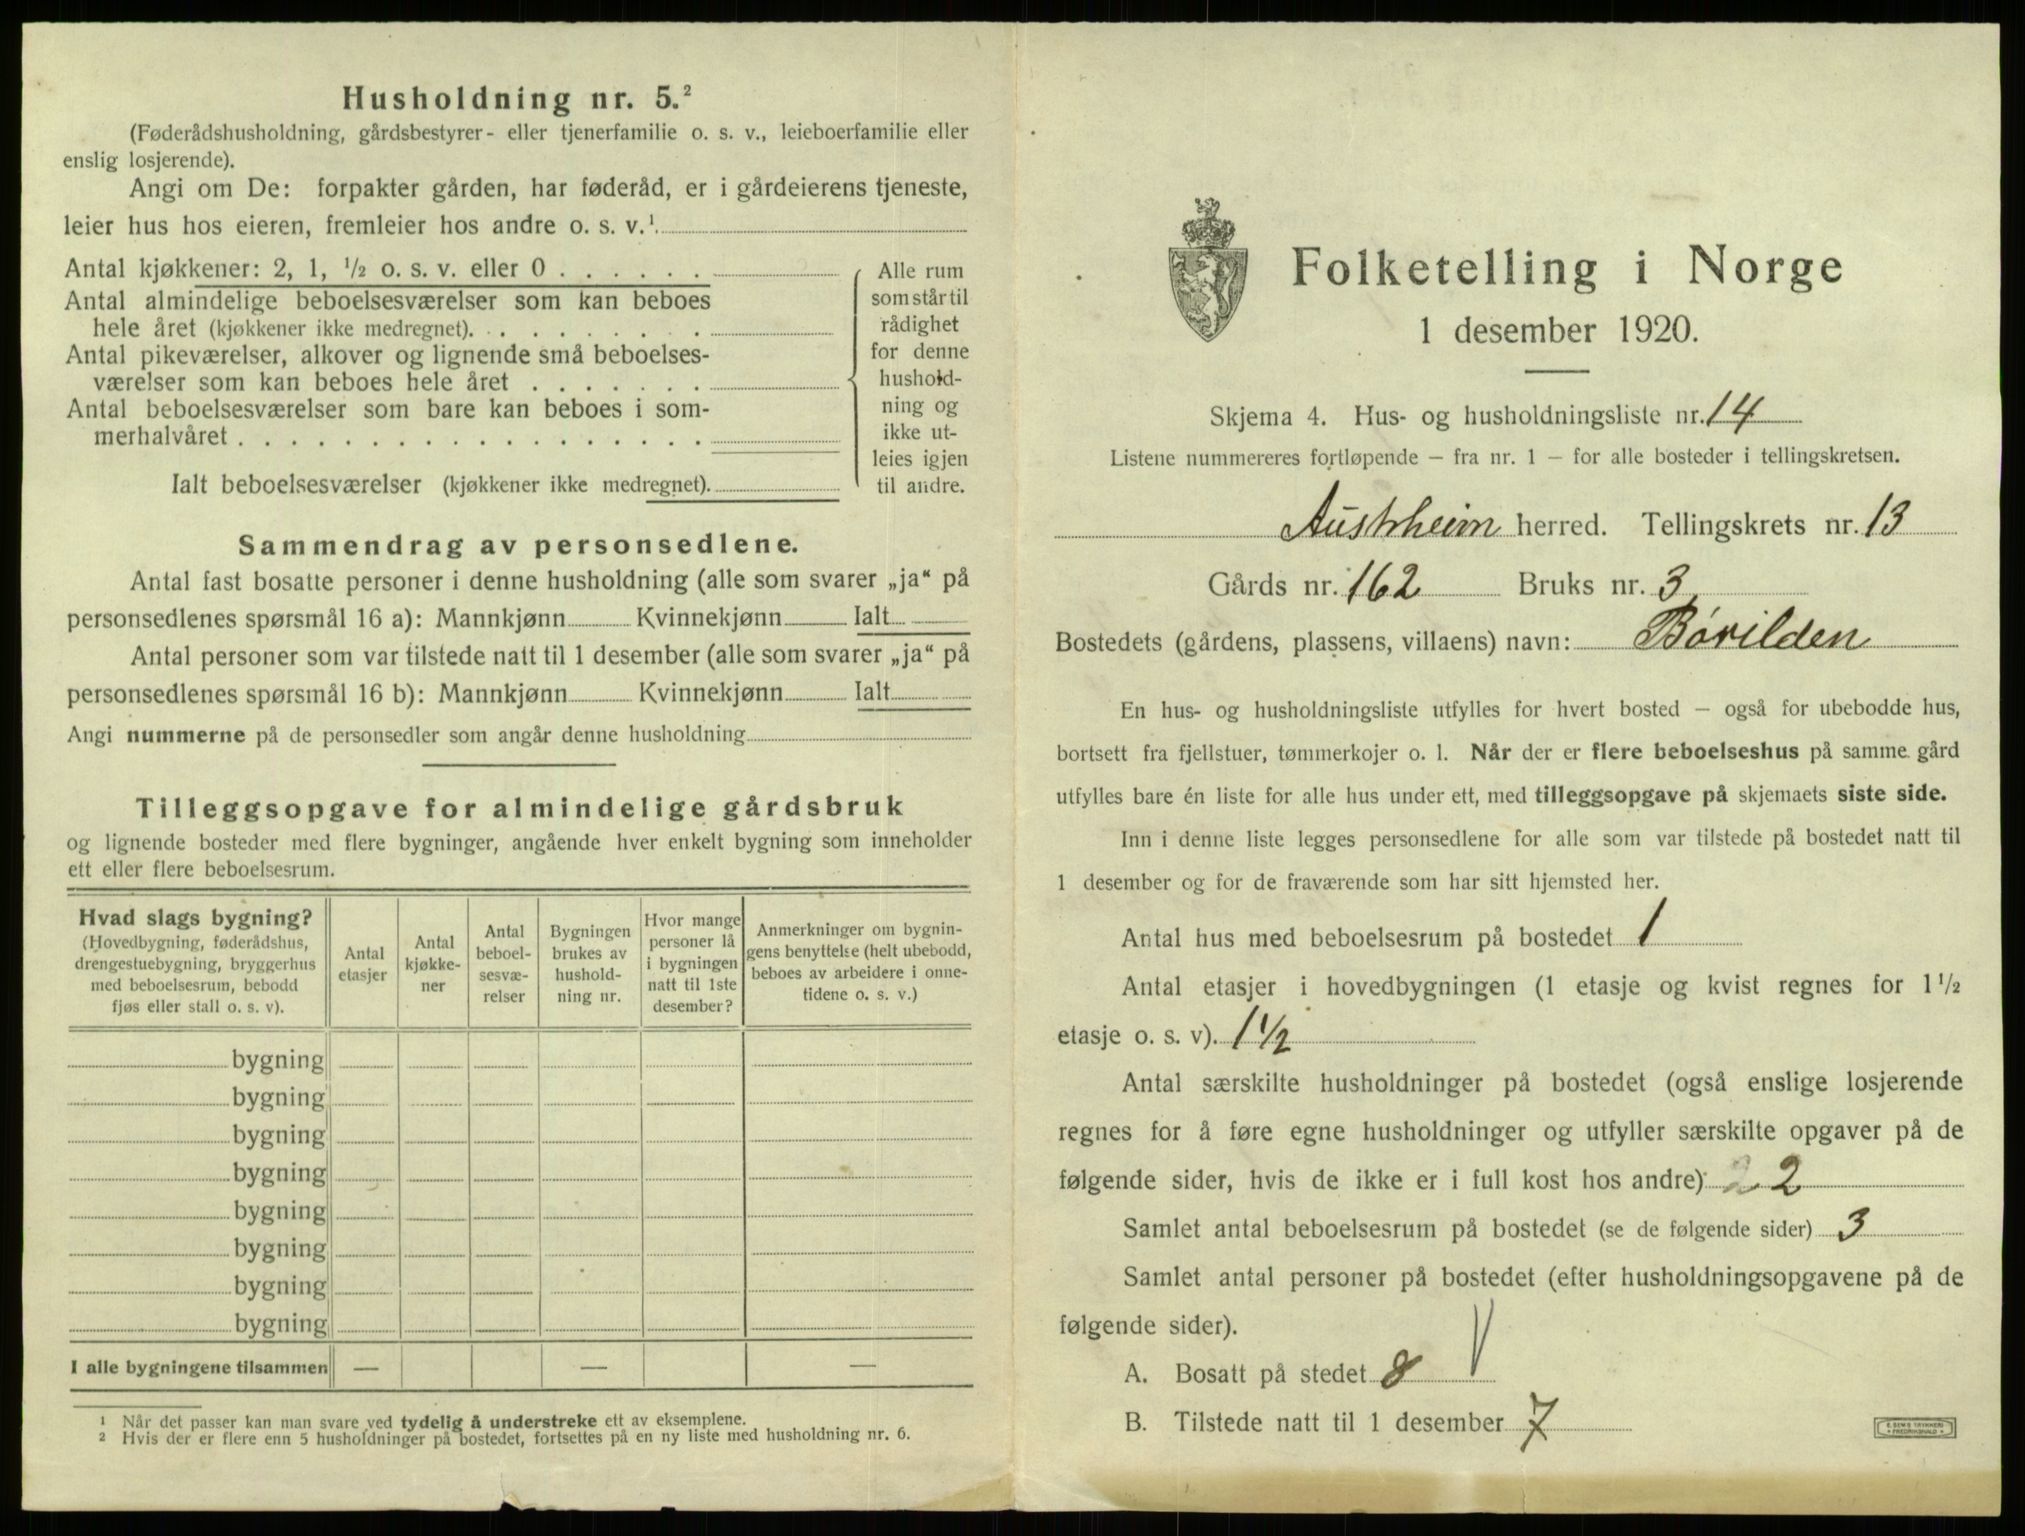 Husholdning nr. 5.²
(Føderådshusholdning, gårdsbestyrer- eller tjenerfamilie o. s. v., leieboerfamilie eller
enslig losjerende).
Angi om De: forpakter gården, har føderåd, er i gårdeierens tjeneste,
leier hus hos eieren, fremleier hos andre o. s. v.¹
Antal kjøkkener: 2, 1, ½ o. s. v. eller 0 . . . . . .
Antal almindelige beboelsesværelser som kan beboes
hele året (kjøkkener ikke medregnet). . . . . . . . .
Antal pikeværelser, alkover og lignende små beboelses-
værelser som kan beboes hele året . . . . . . .
Antal beboelsesværelser som bare kan beboes i som-
merhalvåret . . . . . . . . . . . . . . . . . .
Ialt beboelsesværelser (kjøkkener ikke medregnet).
Alle rum
som står til
rådighet
for denne
hushold-
ning og
ikke ut-
leies igjen
til andre.
Sammendrag av personsedlene.
Antal fast bosatte personer i denne husholdning (alle som svarer „ja“ på
personsedlenes spørsmål 16 a): Mannkjønn Kvinnekjønn Ialt
Antal personer som var tilstede natt til 1 desember (alle som svarer „ja“ på
personsedlenes spørsmål 16 b): Mannkjønn Kvinnekjønn Ialt
Angi nummerne på de personsedler som angår denne husholdning
Tilleggsopgave for almindelige gårdsbruk
og lignende bosteder med flere bygninger, angående hver enkelt bygning som inneholder
ett eller flere beboelsesrum.
Hvad slags bygning?
(Hovedbygning, føderådshus,
drengestuebygning, bryggerhus
med beboelsesrum, bebodd
fjøs eller stall o. s. v).
Antal
etasjer
Antal
kjøkke-
ner
Antal
beboel-
sesvæ-
relser
Bygningen
brukes av
hushold-
ning nr.
Hvor mange
personer lå
i bygningen
natt til 1ste
desember?
Anmerkninger om bygnin-
gens benyttelse (helt ubebodd,
beboes av arbeidere i onne-
tidene o. s. v.)
bygning
bygning
bygning
bygning
bygning
bygning
bygning
bygning
I alle bygningene tilsammen — — —
¹ Når det passer kan man svare ved tydelig å understreke ett av eksemplene.
² Hvis der er flere enn 5 husholdninger på bostedet, fortsettes på en ny liste med husholdning nr. 6.
Folketelling i Norge
1 desember 1920.
Skjema 4. Hus- og husholdningsliste nr. 14
Listene nummereres fortløpende — fra nr. 1 — for alle bosteder i tellingskretsen.
Austrheim herred. Tellingskrets nr. 13
Gårds nr. 162 Bruks nr. 3
Bostedets (gårdens, plassens, villaens) navn: Børilden
En hus- og husholdningsliste utfylles for hvert bosted — også for ubebodde hus,
bortsett fra fjellstuer, tømmerkojer o. l. Når der er flere beboelseshus på samme gård
utfylles bare én liste for alle hus under ett, med tilleggsopgave på skjemaets siste side.
Inn i denne liste legges personsedlene for alle som var tilstede på bostedet natt til
1 desember og for de fraværende som har sitt hjemsted her.
Antal hus med beboelsesrum på bostedet 1
Antal etasjer i hovedbygningen (1 etasje og kvist regnes for 1½
etasje o. s. v). 1½
Antal særskilte husholdninger på bostedet (også enslige losjerende
regnes for å føre egne husholdninger og utfyller særskilte opgaver på de
følgende sider, hvis de ikke er i full kost hos andre) 2 2
Samlet antal beboelsesrum på bostedet (se de følgende sider) 3
Samlet antal personer på bostedet (efter husholdningsopgavene på de
følgende sider).
A. Bosatt på stedet 8
B. Tilstede natt til 1 desember 7
E. SEM'S TRYKKERI
FREDRIKSHALD